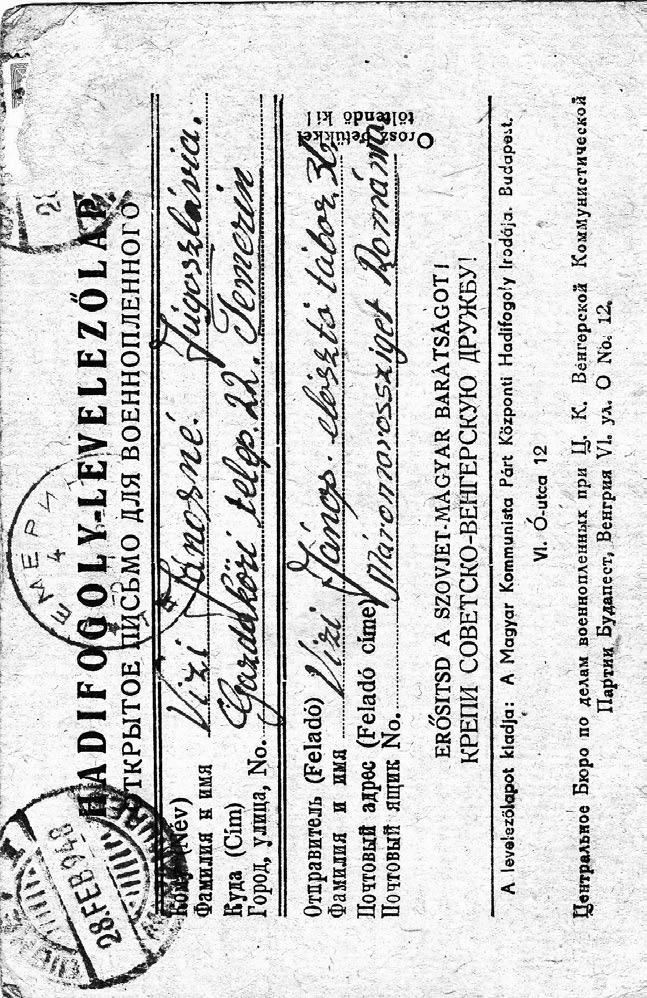 HADIFOGOLY-LEVELEZŐLAP
ТКРЫТОЕ ПИСЬМО ДЛЯ ВОЕННОПЛЕННОГО
ЕМЕРИ
4
28
28.FEB948
Кому (Név)
Фамилия и имя Vizi Jánosné. Jugoszlávia.
Куда (Cím)
Город, улица, No. Gazdaköri telep. 22. Temerin
Orosz betükkel
töltendö ki!
Отправитель (Feladó)
Фамилия и имя Vizi János. elosztó tábor. 36
Почтовый адрес (Feladó címe) Máramarossziget Románia
Почтовый ящик No.
ERŐSITSD A SZOVJET-MAGYAR BARÁTSÁGOT!
КРЕПИ СОВЕТСКО-ВЕНГЕРСКУЮ ДРУЖБУ!
A levelezőlapot kiadja: A Magyar Kommunista Párt Központi Hadifogoly Irodája. Budapest.
VI. Ó-utca 12
Центральное Бюро по делам военнопленных при Ц. К. Венгерской Коммунистической
Партии Будапест, Венгрия VI. ул. О No. 12.